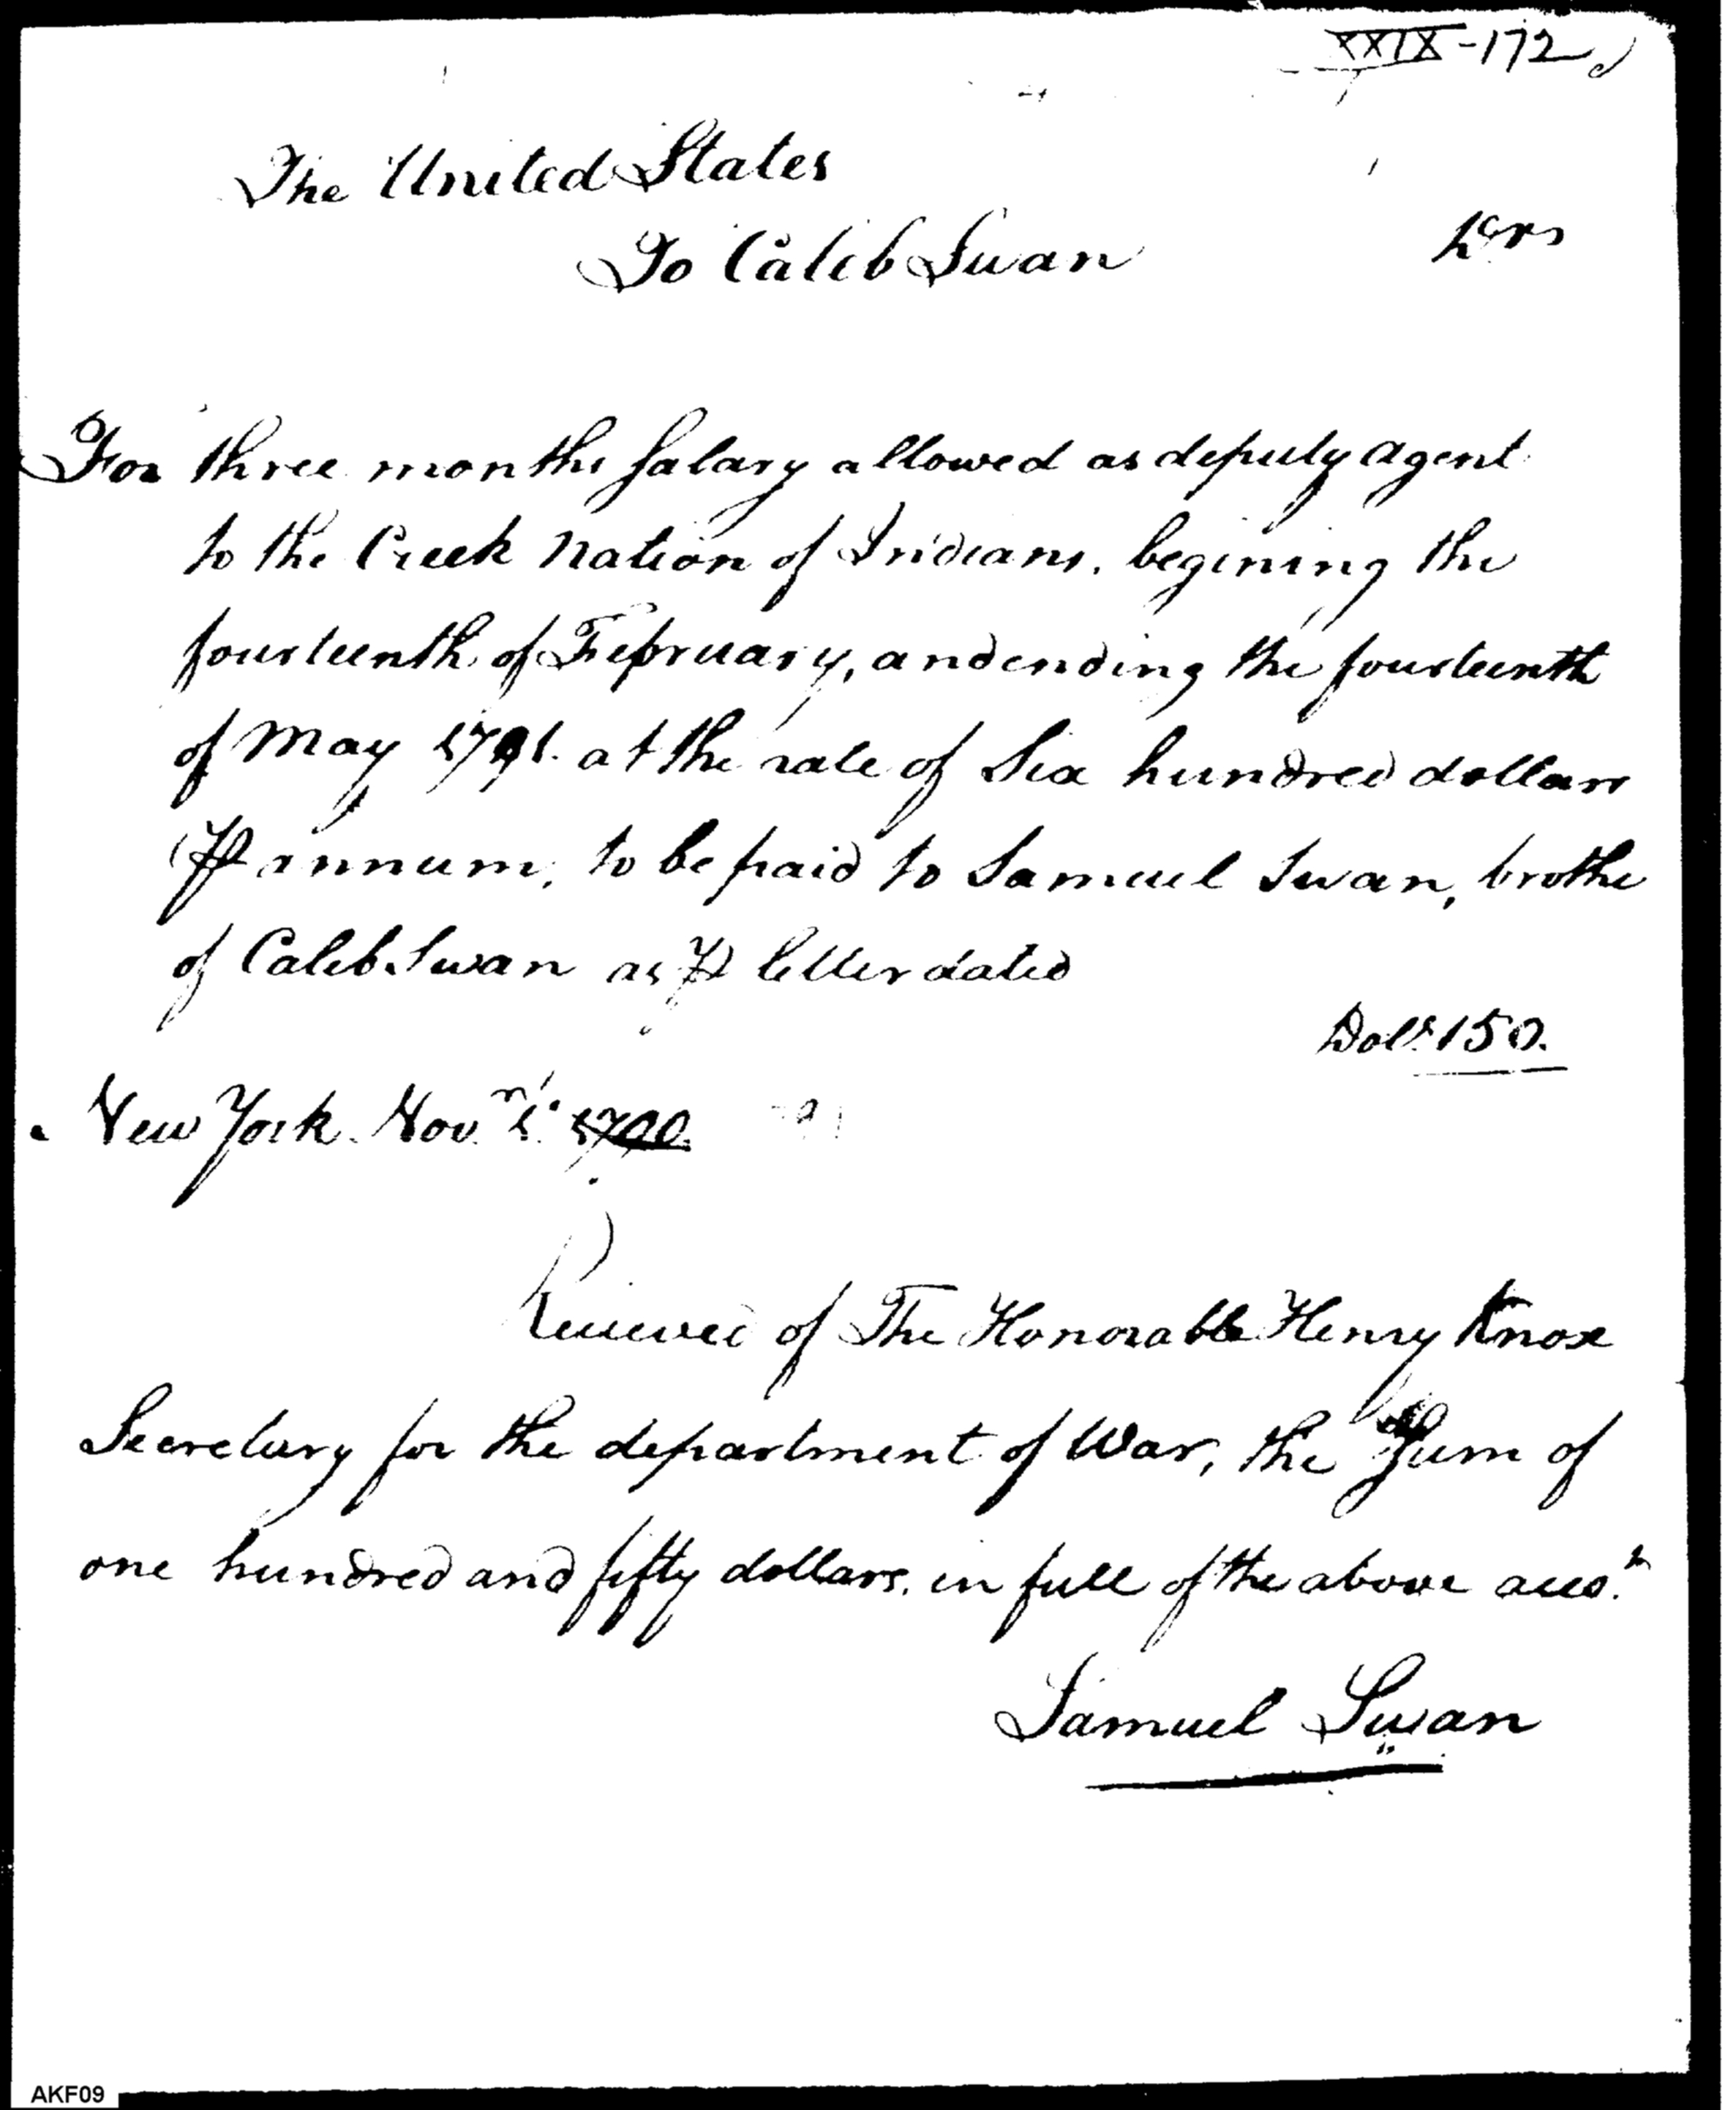 XXIX-172
The United States
To Caleb Swan Drs
For three months Salary allowed as deputy agent
to the Creek Nation of Indians, begining the
fourteenth of February, and ending the fourteenth
of May 1791. at the rate of Six hundred dollars
⅌ annum, to be paid to Samuel Swan, brothe
of Caleb Swan as ⅌ letter dated
Dolls. 150.
New York Novr. 1. 1790.
Received of The Honorable Henry Knox
Secretary for the department of War, the Sum of
one hundred and fifty dollars, in full of the above acco.t
Samuel Swan
AKF09